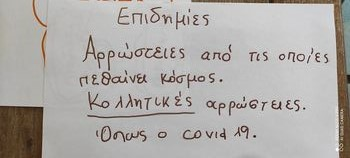 Επιδημίες
Αρρώστειες από τις οποίες
πεθαίνει κόσμος.
Κολλητικές αρρώστειες.
Όπως ο covid 19.